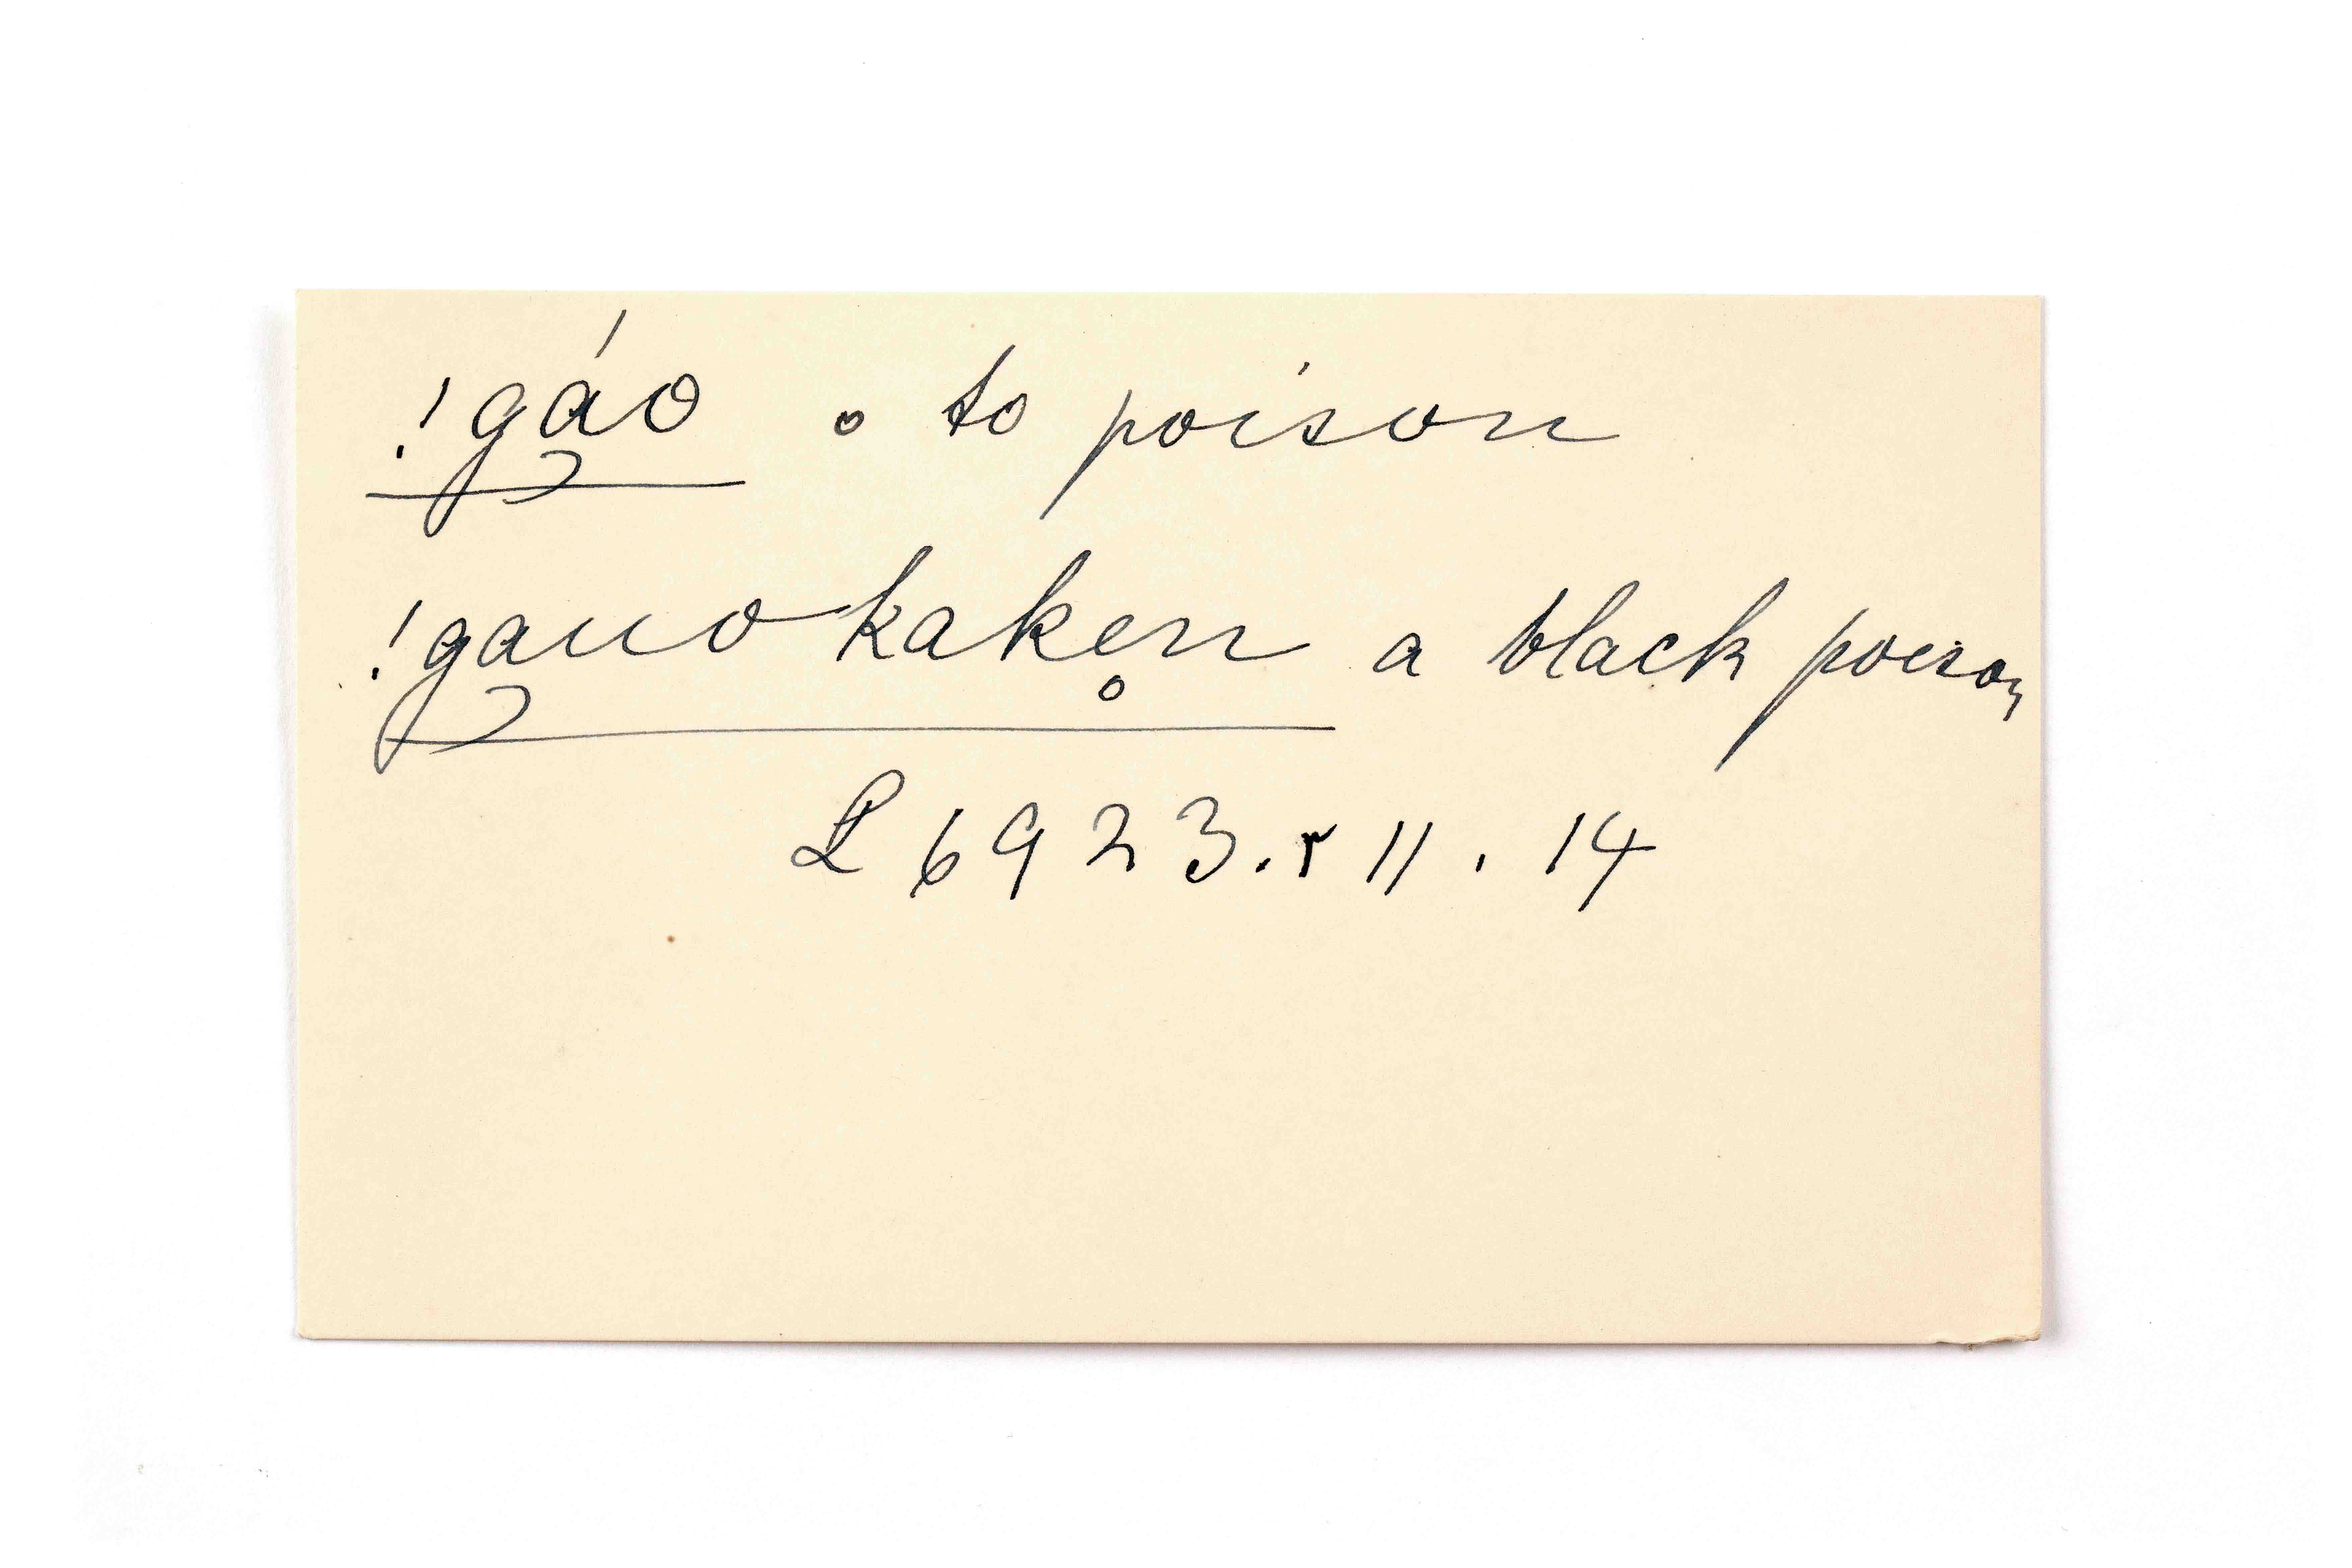 !g̮áo ₒ to poison
!g̮auokake̥n a black poison
L 6923. r 11 . 14